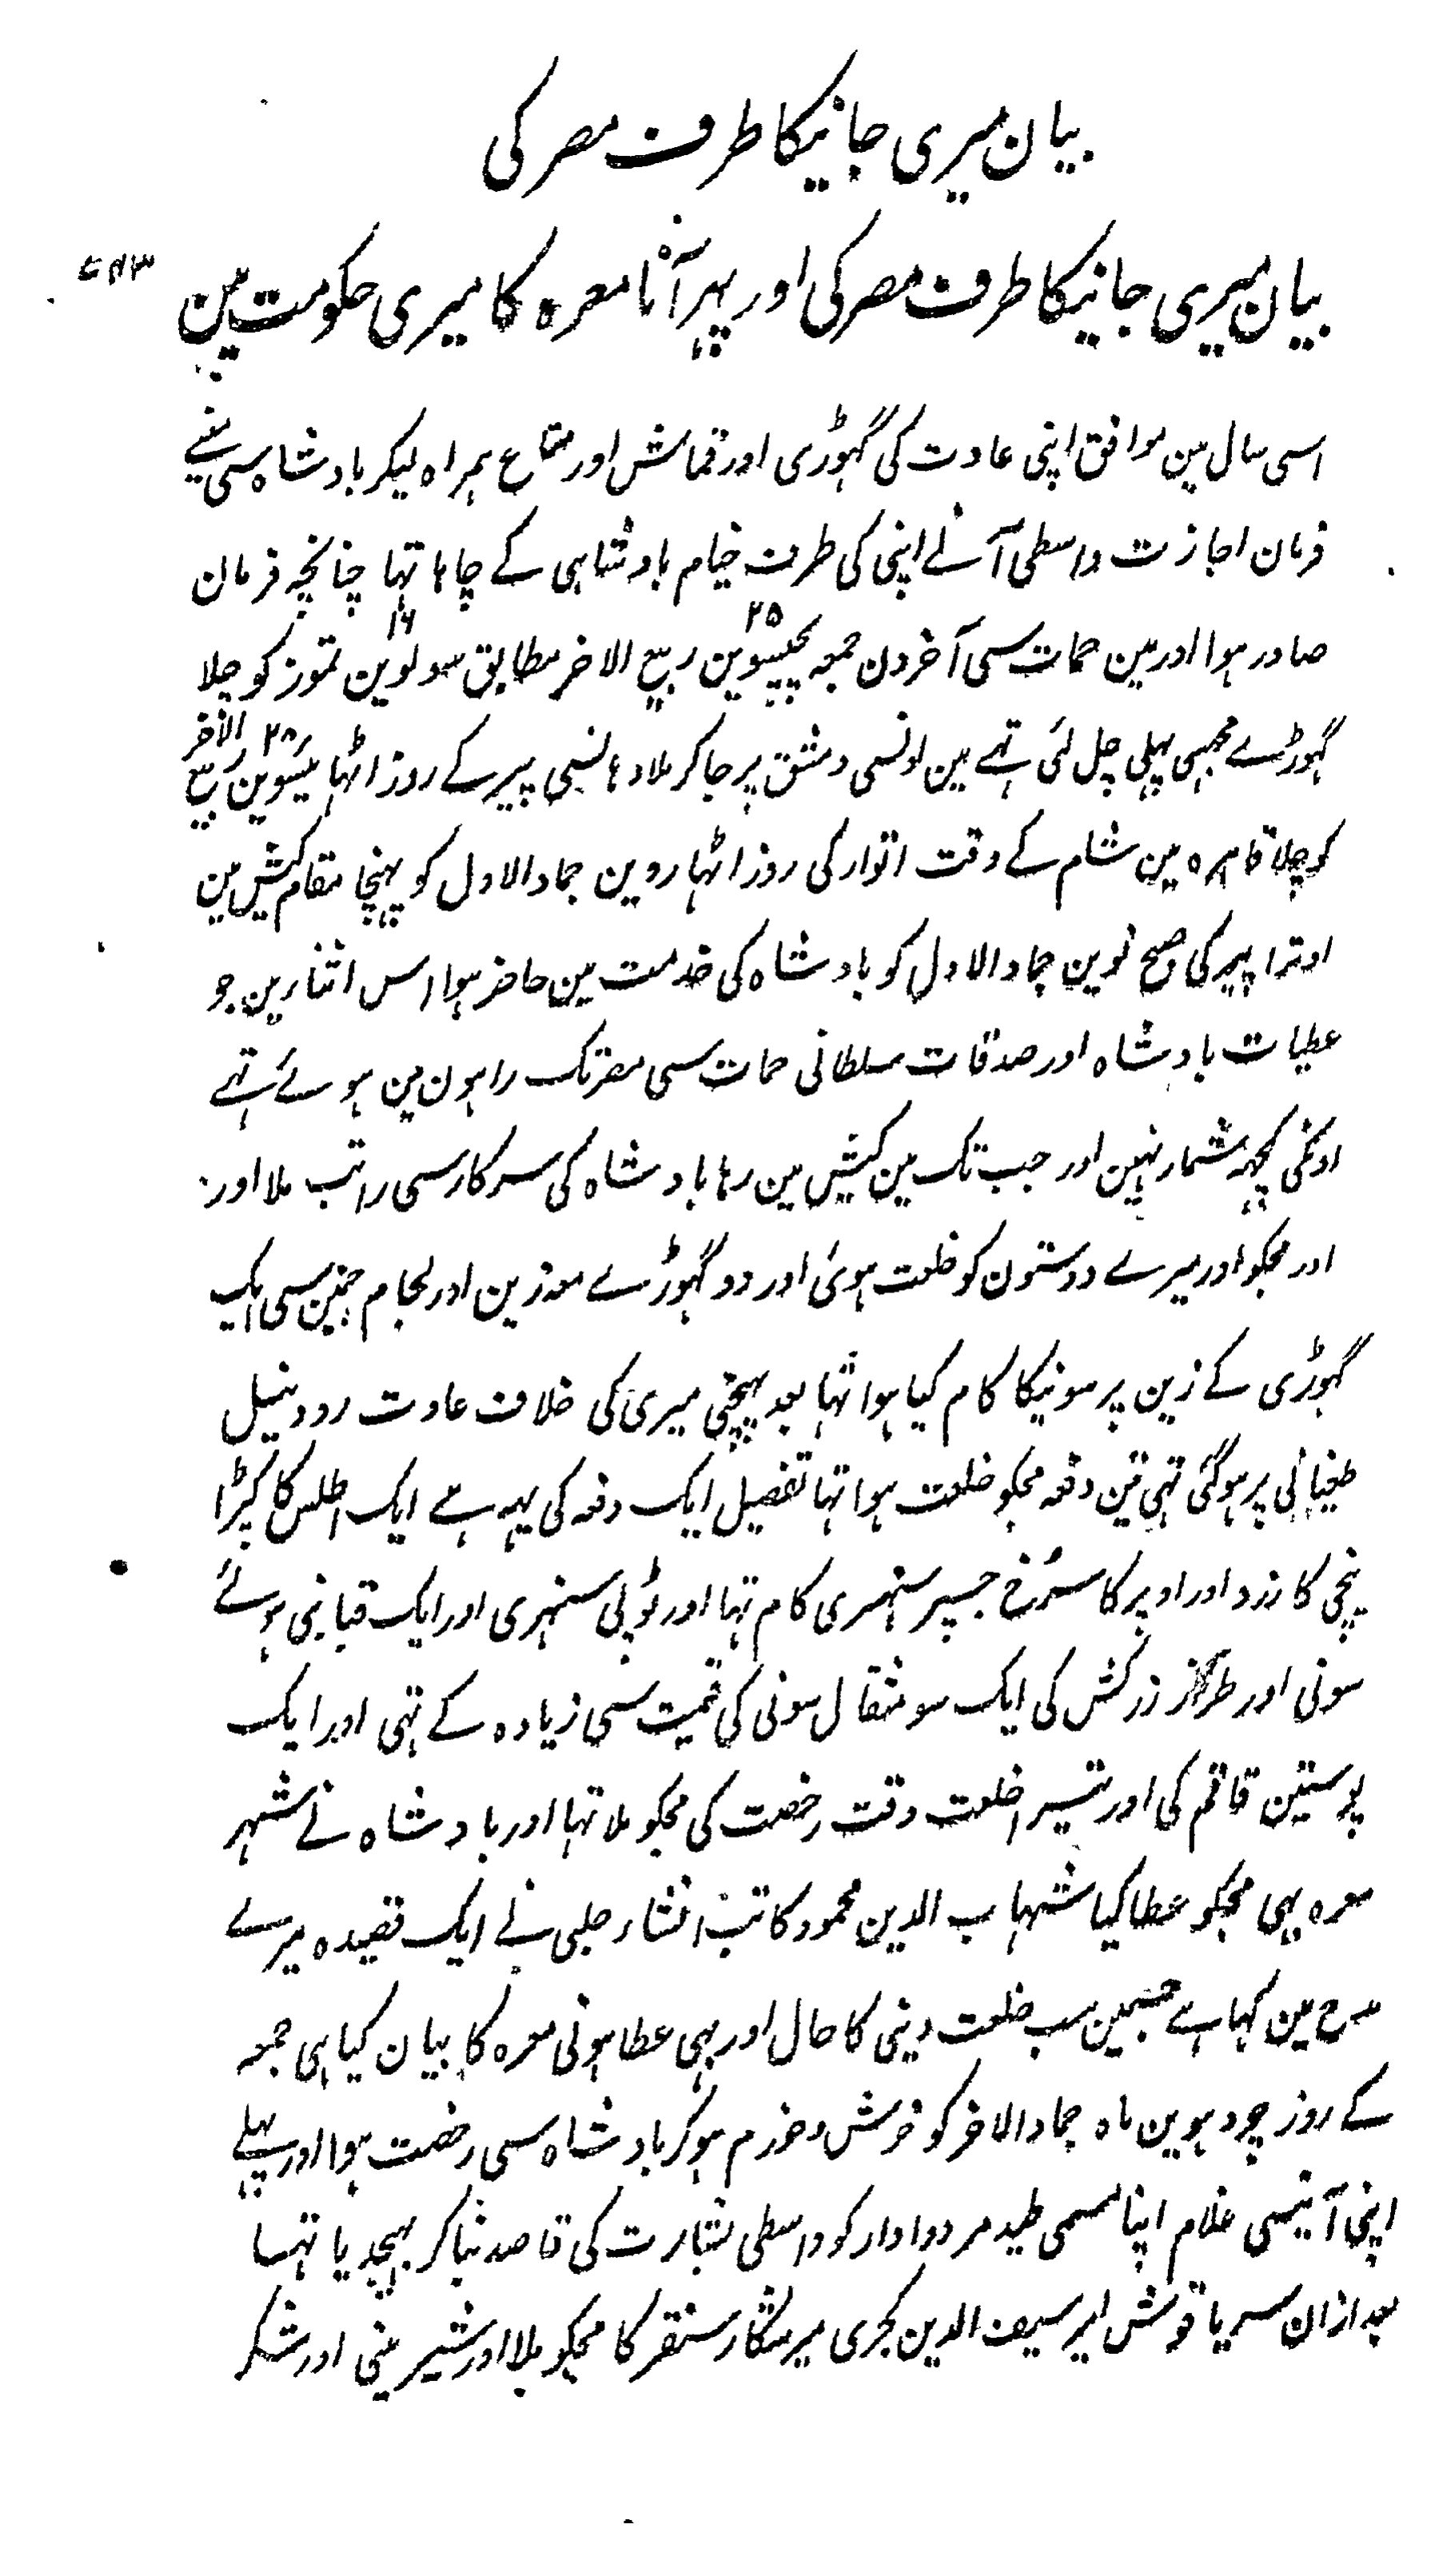 بیان میری جانیکا طرف مصر کی
بیان میری جانیکا طرف مصر کی اور پہر آنا معرہ کا میری حکومت مین
اسی سال مین موافق اپنی عادت کی گہوڑی اور قماش اور متاع ہمراہ لیکر بادشاہ سی مینے
فرمان اجازت واسطی آنے اپنی کی طرف خیام بادشاہی کے چاہا تہا چنانچہ فرمان
صادر ہوا اور مین حمات سی آخر دن جمعہ پچیسوین ۲۵ ربیع الاخر مطابق سولوین ۱۶ تموز کو چلا
گہوڑے مجہسی پہلی چل لئی تہے مین اونسی دمشق پر جا کر ملا وہانسی پیر کے روز اٹہائیسوین ۲۸ ربیع الاخر
کو چلا قاہرہ مین شام کے وقت اتوار کی روز اٹہاروین جماد الاول کو پہنچا مقام کبش مین
اوترا پیر کی صبح نوین جماد الاول کو بادشاہ کی خدمت مین حاضر ہوا اس اثنا مین جو
عطیات بادشاہ اور صدقات سلطانی حمات سی مصر تک راہون مین ہوئے تہے
اونکی کچہہ شمار نہین اور جب تک مین کبش مین رہا بادشاہ کی سرکار سی راتب ملا اور
اور مجکو اور میرے دوستون کو خلعت ہوئی اور دو گہوڑے معہ زین اور لجام جنمین سی ایک
گہوڑی کے زین پر سونیکا کام کیا ہوا تہا بعد پہچنی میری کی خلاف عادت رود نیل
طغیانی پر ہو گئی تہی تین دفعہ مجکو خلعت ہوا تہا تفصیل ایک دفعہ کی یہہ ہے ایک اطلس کا کپڑا
نیچی کا زرد اور اوپر کا سرخ جسپر سنہری کام تہا اور ٹوپی سنہری اور ایک قبا بنی ہوئے
سونی اور طراز زرکش کی ایک سو مثقال سونی کی قیمت سی زیادہ کے تہی اور ایک
پوستین قاقم کی اور تیسرا خلعت وقت رخصت کی مجکو ملا تہا اور بادشاہ نے شہر
معرہ بہی مجکو عطا کیا شہاب الدین محمود کاتب انشاء حلبی نے ایک قصیدہ میرے
مدح مین کہا ہے جسمین سب خلعت دینی کا حال اور بہی عطا ہونی معرہ کا بیان کیا ہی جمعہ
کے روز چودہوین ماہ جماد الاخر کو خوش و خرم ہو کر بادشاہ سی رخصت ہوا اور پہلے
اپنی آنیسی غلام اپنا مسمی طیدمر دوادار کو واسطی بشارت کی قاصد بنا کر بہیجدیا تہا
بعد ازان سریاقوش امیر سیف الدین کجری میر شکار سنقر کا مجکو ملا اور شیرینی اور شکر